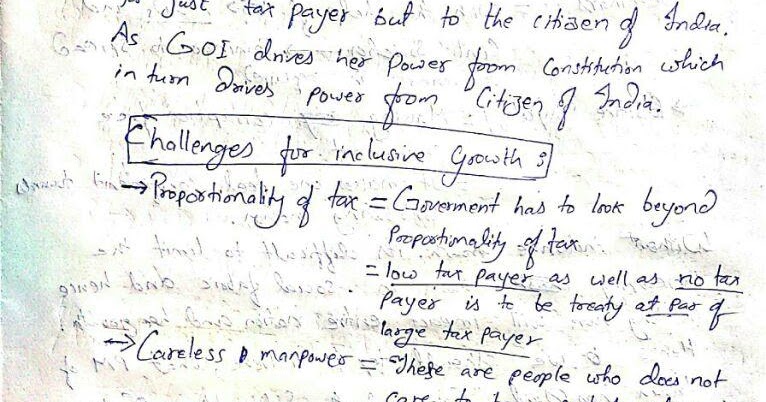 just tax payer but to the citizen of India.
As GOI drives her Power from Constitution which
in turn drives power from Citizen of India.
Challenges for inclusive Growth :
→ Proportionality of tax = Goverment has to look beyond
Proportionality of tax
= low tax payer as well as no tax
Payer is to be treaty at par of
large tax payer
→ Careless manpower = These are people who does not
care to